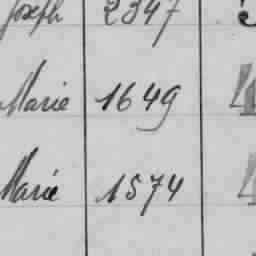 Joseph 2347
Marie 1649
Marie 1574